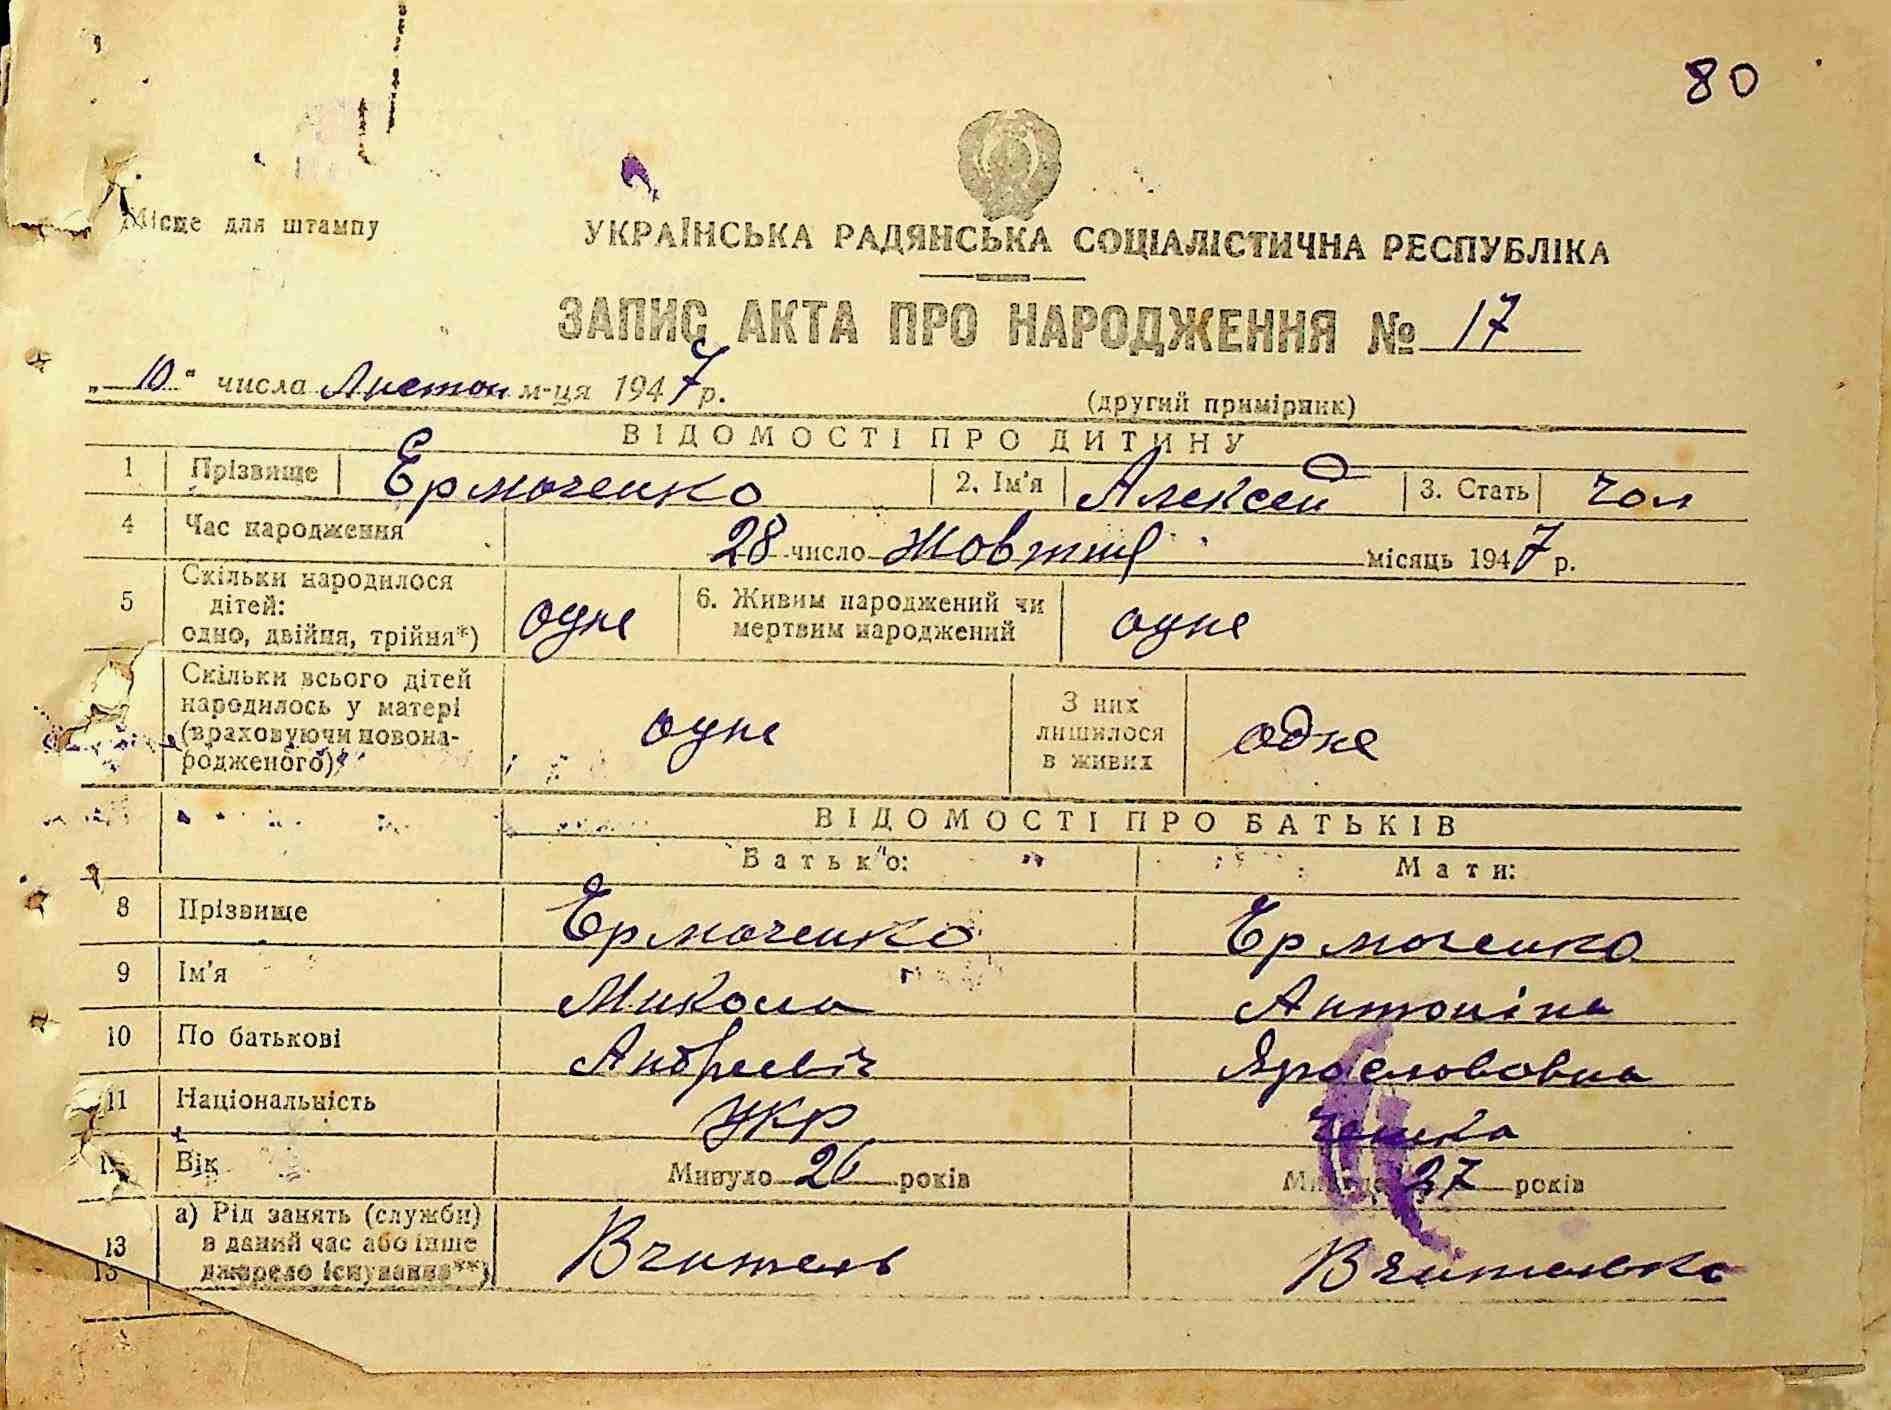 80
Місце для штампу
УКРАЇНСЬКА РАДЯНСЬКА СОЦІАЛІСТИЧНА РЕСПУБЛІКА
ЗАПИС АКТА ПРО НАРОДЖЕННЯ № 17
„10" числа Листоп м-ця 1947 р.
(другий примірник)
ВІДОМОСТІ ПРО ДИТИНУ
1 Прізвище Ермоченко 2. Ім'я Алексей 3. Стать Чол
4 Час народження 28 число Жовтня місяць 1947 р.
5 Скільки народилося дітей: одно, двійня, трійня*) одне 6. Живим народжений чи мертвим народжений одне
Скільки всього дітей народилось у матері (враховуючи новонародженого) одне З них лишилося в живих одне
ВІДОМОСТІ ПРО БАТЬКІВ
Батько: Мати:
8 Прізвище Ермоченко Ермоченко
9 Ім'я Микола Антоніна
10 По батькові Андреевіч Ярославовна
11 Національність Укр Чешка
12 Вік Минуло 26 років Минуло 27 років
13 а) Рід занять (служби) в даний час або інше джерело існування**) Вчитель Вчителька
13